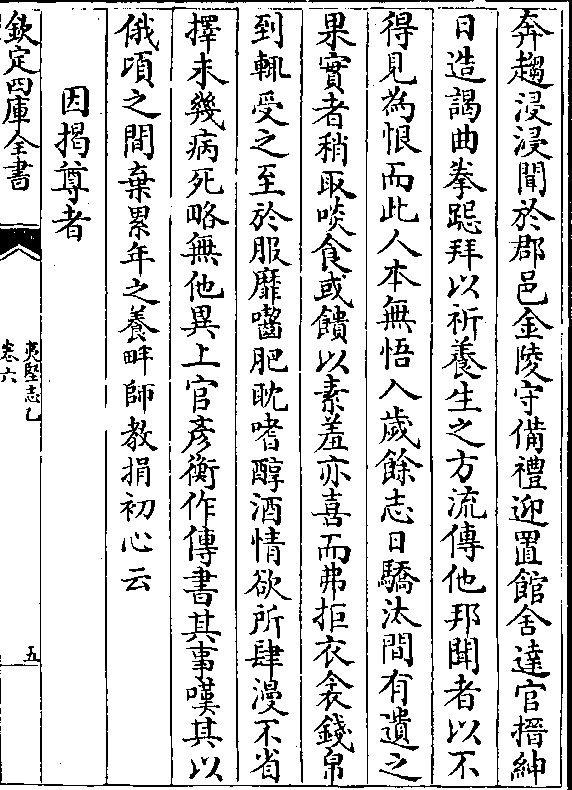 奔趨浸浸聞於郡邑金陵守備禮迎置館舍達官搢紳
日造謁曲拳跽拜以祈養生之方流傳他邦聞者以不
得見為恨而此人本無悟入歲餘志日驕汰間有遺之
果實者稍取啖食或饋以素羞亦喜而弗拒衣衾錢帛
到輒受之至於服靡囓肥耽嗜醇酒情欲所肆漫不省
擇未幾病死略無他異上官彥衡作傳書其事嘆其以
俄頃之間棄累年之養畔師教捐初心云
因揭尊者
欽定四庫全書
夷堅志乙
卷六
五